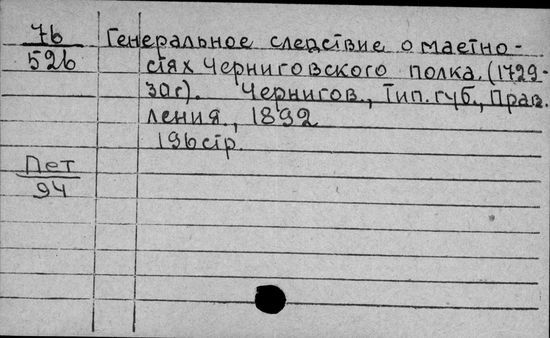 76 Генеральное следствие о маетно-
526 стях Черниговского полка. (1729-
30г). Чернигов., Тип. губ., Прав.
ления., 1892
196 стр.
Пет
94